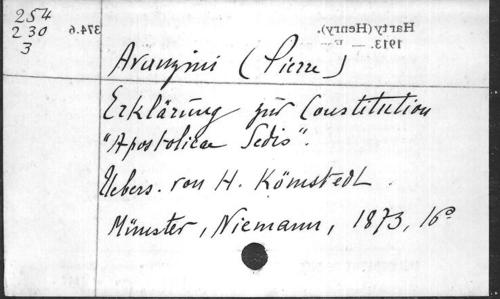 254
230
3
Avanzini (Pierre)
Erklärung zur Constitution
"Apostolicae Sedis".
Uebers. von H. Kömstedt.
Münster, Niemann, 1873, 16°
374.6
Harty (Henry).
1913. —